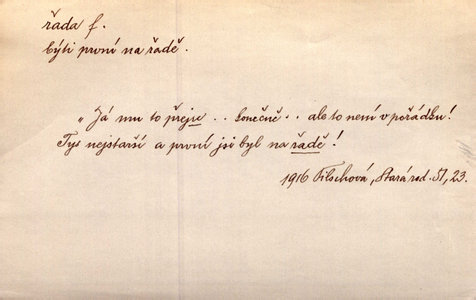 řada f.
býti první na řadě.
„Já mu to přeju .. konečně .. ale to není v pořádku!
Tys nejstarší a první jsi byl na řadě!
1916 Tilschová, Stará rod. II, 23.